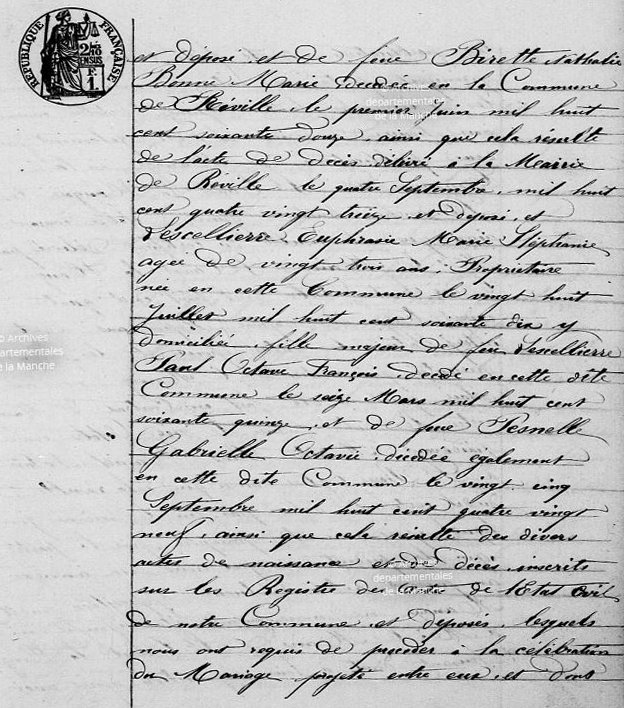 RÉPUBLIQUE FRANÇAISE
2/10 EN SUS
F.
1.
et déposé, et de feue Birette Nathalie
Bonne Marie décédée en la Commune
de Réville, le premier Juin mil huit
cent soixante douze, ainsi que cela résulte
de l'acte de décès délivré à la Mairie
de Réville le quatre Septembre, mil huit
cent quatre vingt treize, et déposé, et
Lescellierre, Euphrasie Marie Stéphanie,
agée de vingt trois ans, Propriétaire
née en cette Commune le vingt huit
Juillet mil huit cent soixante dix y
domiciliée, fille majeure de feu Lescellierre
Paul Octave François, décédé en cette dite
Commune le seize Mars mil huit cent
soixante quinze, et de feue Pesnelle
Gabrielle Octavie, décédée également
en cette dite Commune le vingt cinq
Septembre mil huit cent quatre vingt
neuf, ainsi que cela résulte des divers
actes de naissance et de décès, inscrits
sur les Registre des Actes de l'Etat civil
de notre Commune et déposés, lesquels
nous ont requis de procéder à la célébration
du Mariage projeté entre eux, et dont
© Archives
départementales
de la Manche
Archives
départementales
de la Manche
départementales